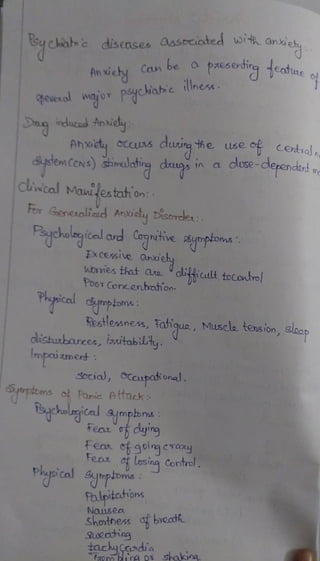 Psychiatric diseases associated with anxiety:-
Anxiety can be a presenting feature of
several major psychiatric illness.
Drug induced Anxiety:
Anxiety occurs during the use of central
system (CNS) stimulating drugs in a dose-dependent
Clinical Manifestation:-
For Generalized Anxiety Disorder:-
Psychological and Cognitive symptoms:
Excessive anxiety
worries that are difficult to control
Poor concentration.
Physical symptoms:
Restlessness, Fatigue, Muscle tension, sleep
disturbances, irritability.
Impairment:
social, occupational.
Symptoms of Panic Attack:-
Psychological symptoms:
Fear of dying
Fear of going crazy
Fear of losing control.
Physical symptoms:
Palpitations
Nausea
Shortness of breath
sweating
tachycardia
Trembling or shaking